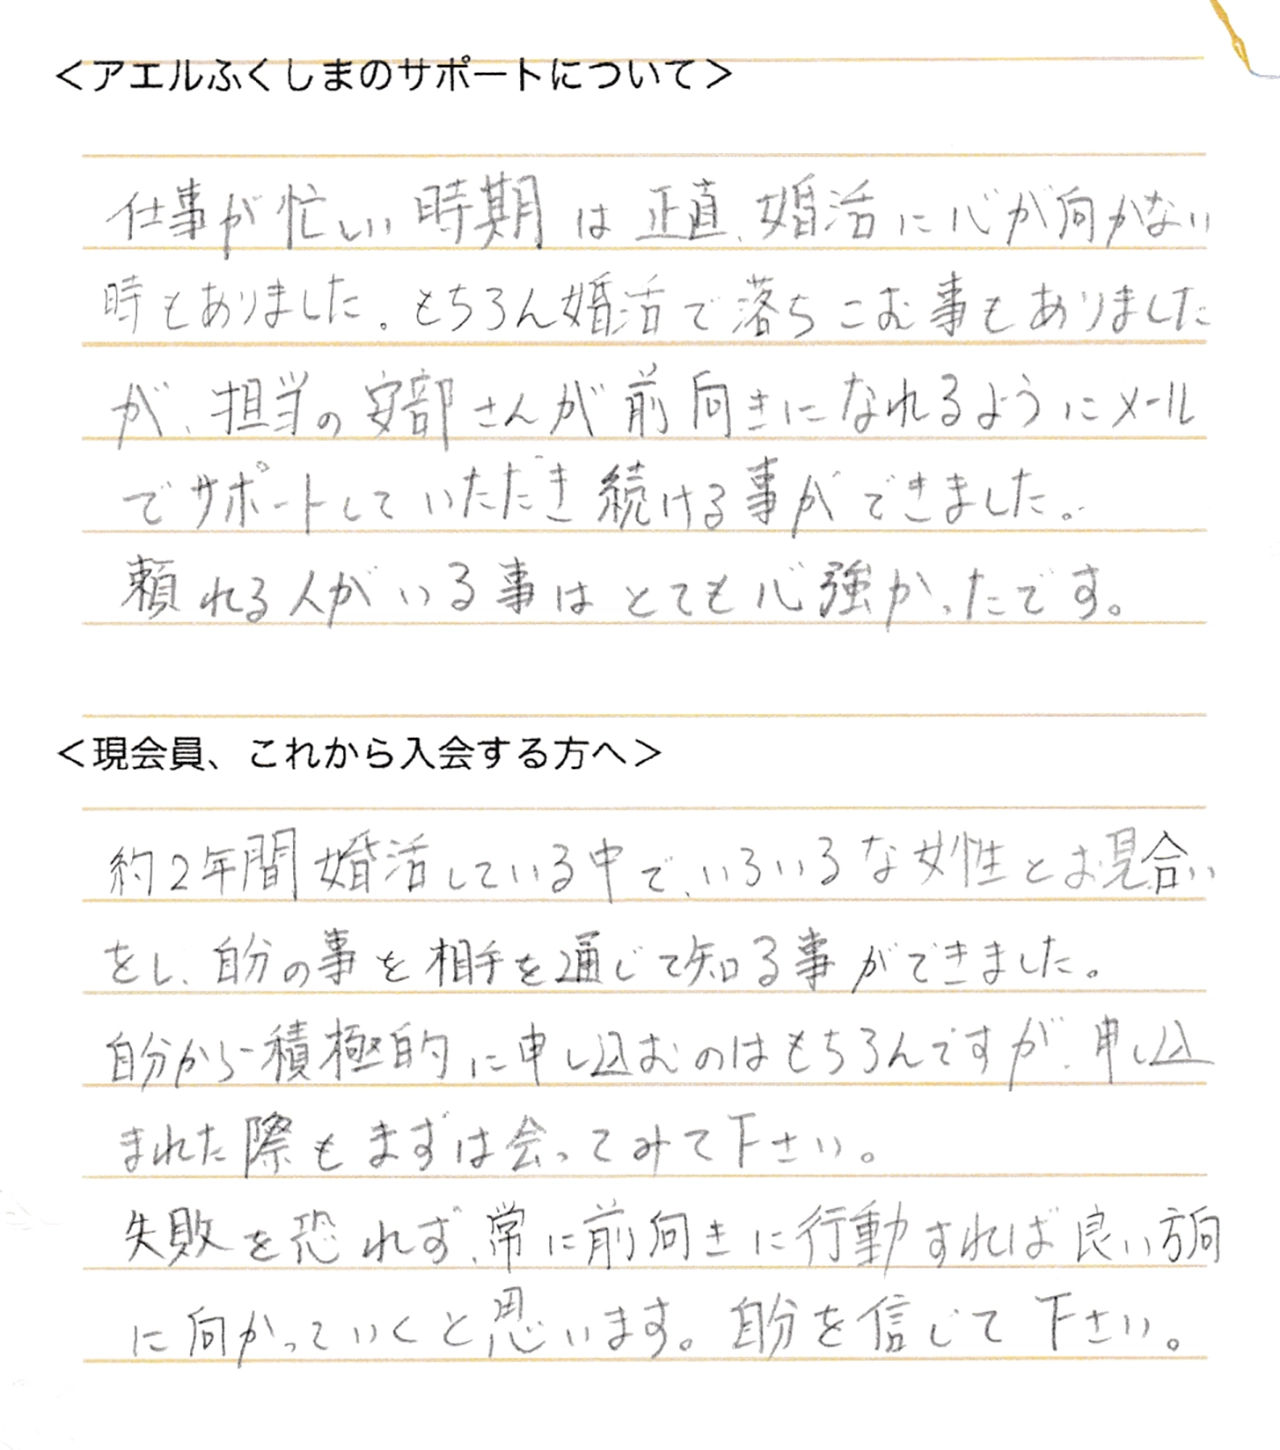 ＜アエルふくしまのサポートについて＞
仕事が忙しい時期は正直、婚活に心が向かない
時もありました。もちろん婚活で落ちこむ事もありました
が、担当の安部さんが前向きになれるようにメール
でサポートしていただき続ける事ができました。
頼れる人がいる事はとても心強かったです。
＜現会員、これから入会する方へ＞
約2年間婚活している中で、いろいろな女性とお見合い
をし、自分の事を相手を通じて知る事ができました。
自分から積極的に申し込むのはもちろんですが、申し込
まれた際もまずは会ってみて下さい。
失敗を恐れず、常に前向きに行動すれば良い方向
に向かっていくと思います。自分を信じて下さい。